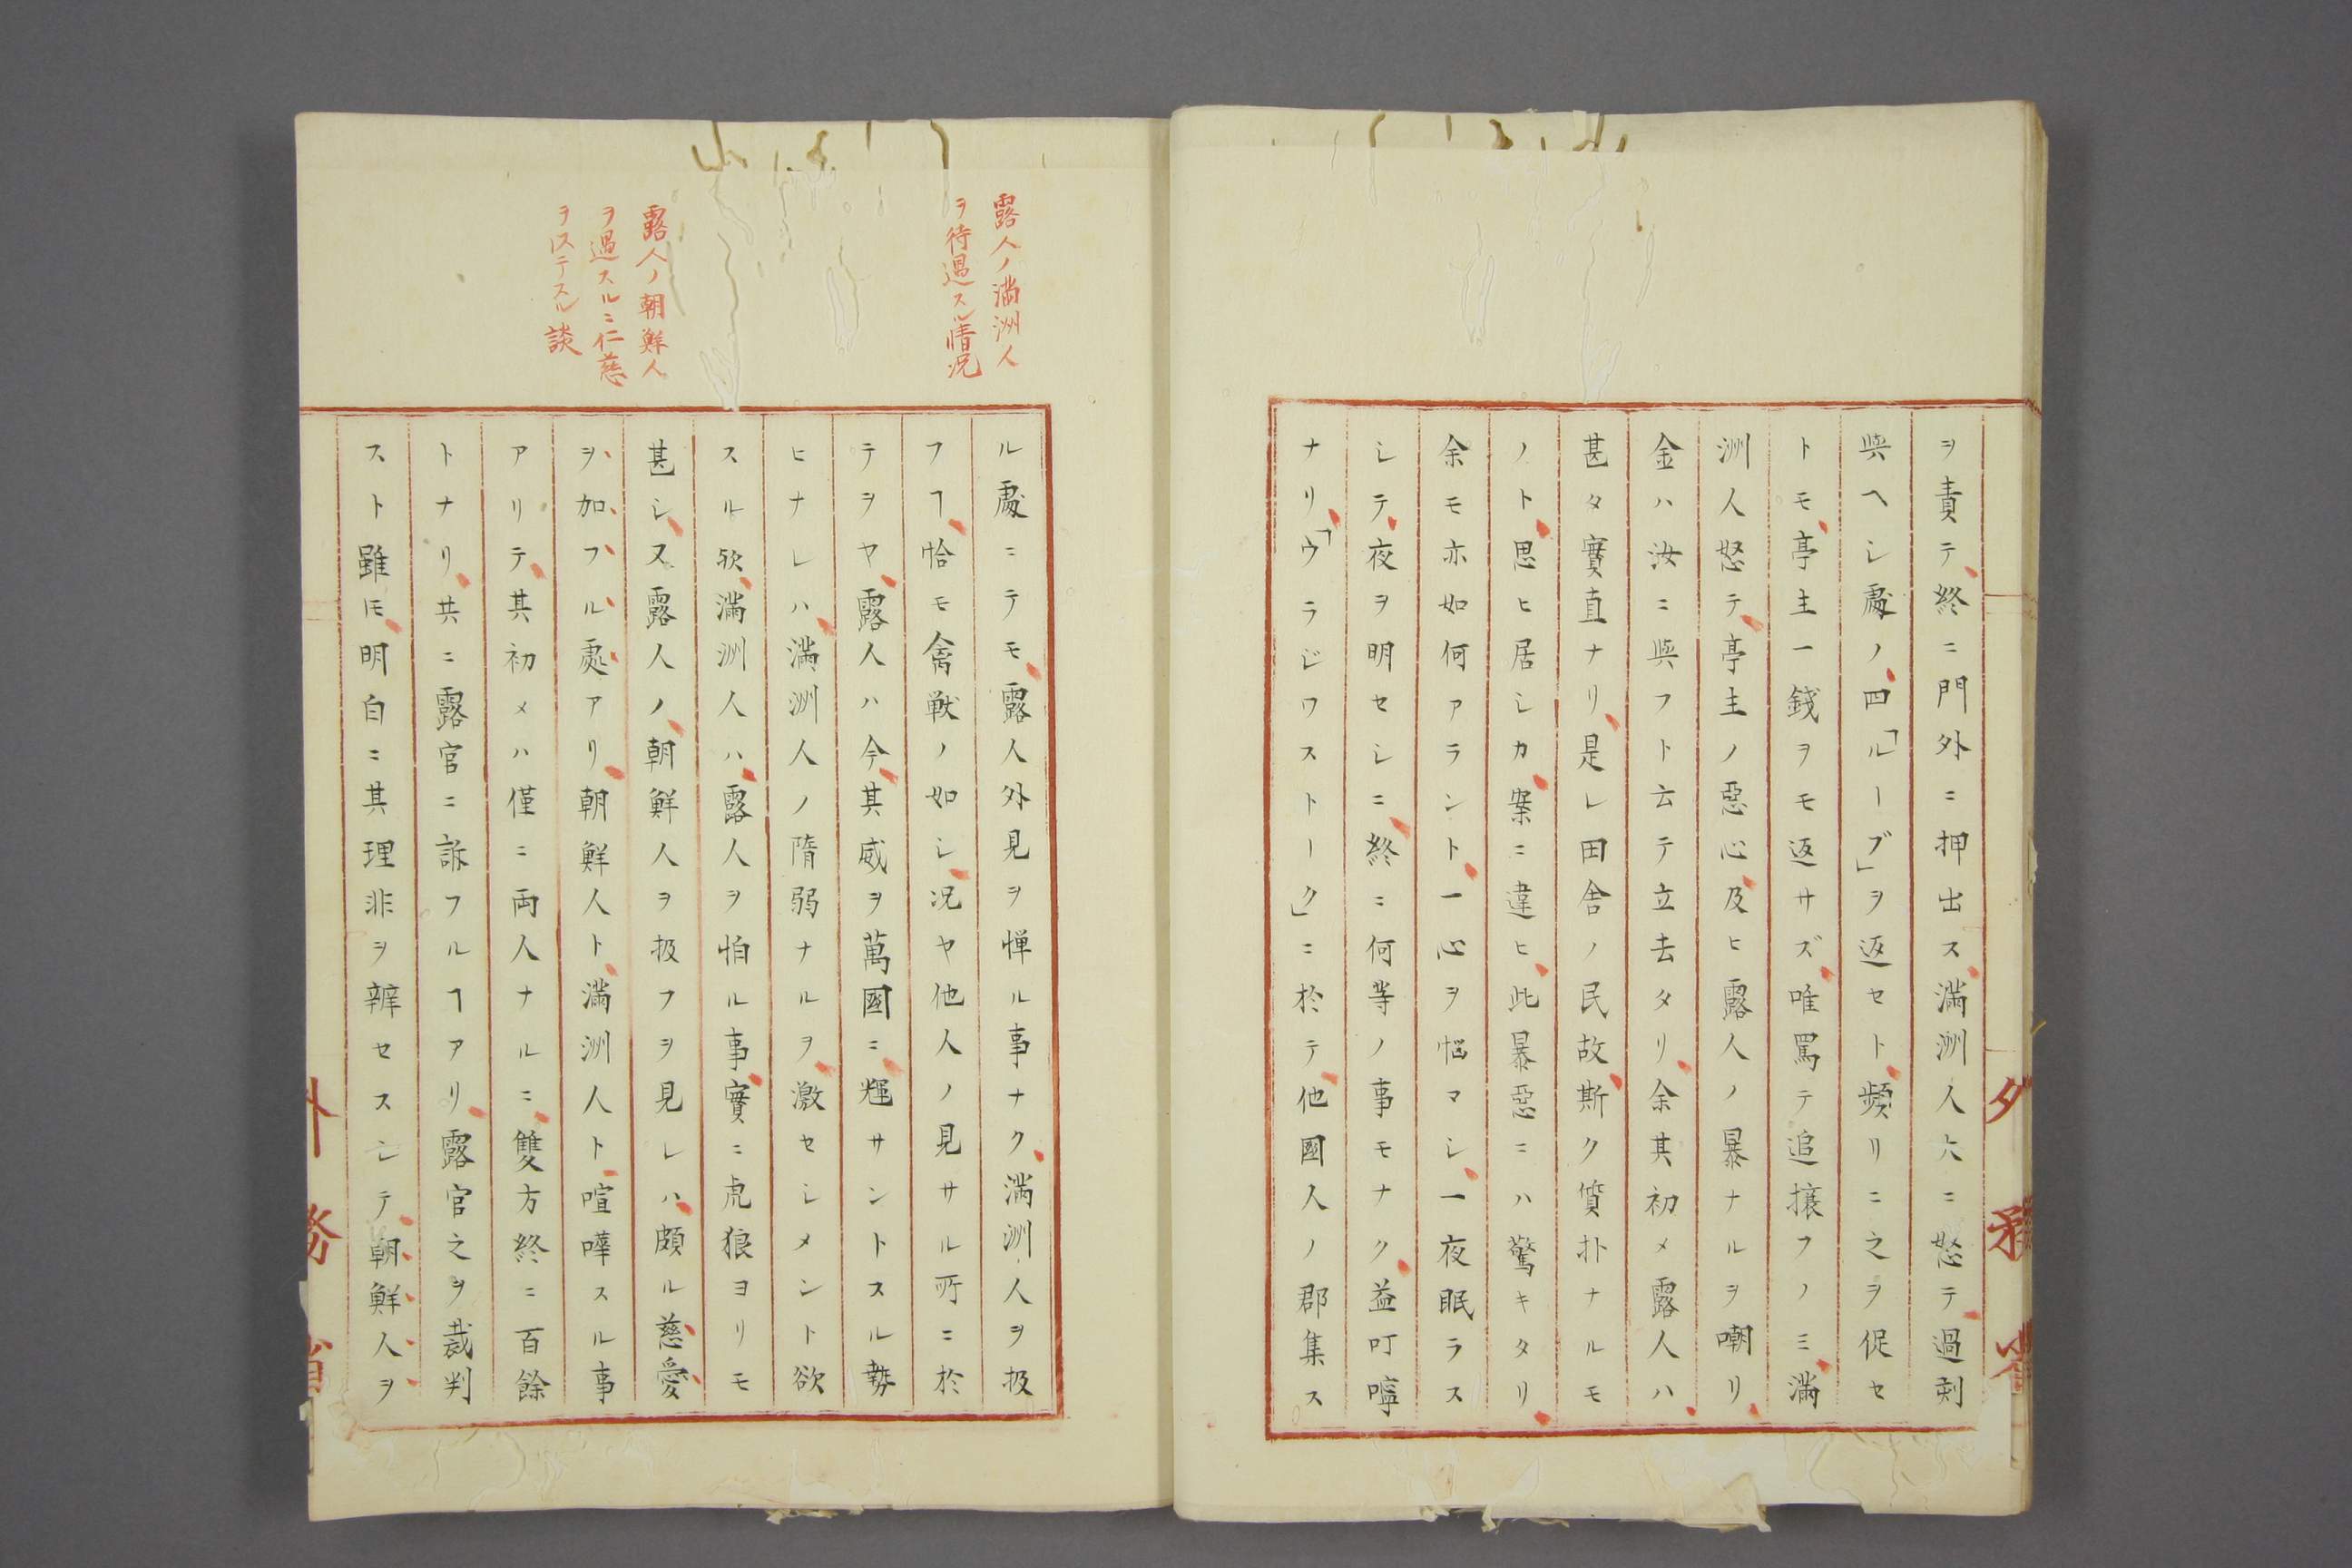 ヲ責テ終ニ門外ニ押出ス滿洲人大ニ怒テ過刻
與ヘシ處ノ四「ルーブ」ヲ返セト頻リニ之ヲ促セ
トモ亭主一錢ヲモ返サズ唯罵テ追攘フノミ滿
洲人怒テ亭主ノ惡心及ヒ露人ノ暴ナルヲ嘲リ
金ハ汝ニ與フト云テ立去タリ余其初メ露人ハ
甚タ實直ナリ是レ田舎ノ民故斯ク質朴ナルモ
ノト思ヒ居シカ案ニ違ヒ此暴惡ニハ驚キタリ
余モ亦如何アラント一心ヲ悩マシ一夜眠ラス
シテ夜ヲ明セシニ終ニ何等ノ事モナク益叮嚀
ナリ「ウラジワストーク」ニ於テ他國人ノ郡集ス
露人ノ滿洲人
ヲ待遇スル情况
露人ノ朝鮮人
ヲ遇スルニ仁慈
ヲ以テスル談
ル處ニテモ露人外見ヲ憚ル事ナク滿洲人ヲ扱
フヿ恰モ禽獣ノ如シ况ヤ他人ノ見サル所ニ於
テヲヤ露人ハ今其威ヲ萬國ニ輝サントスル勢
ヒナレハ滿洲人ノ隋弱ナルヲ激セシメント欲
スル欤滿洲人ハ露人ヲ怕ル事實ニ虎狼ヨリモ
甚シ又露人ノ朝鮮人ヲ扱フヲ見レハ頗ル慈愛
ヲ加フル處アリ朝鮮人ト滿洲人ト喧嘩スル事
アリテ其初メハ僅ニ両人ナルニ雙方終ニ百餘
トナリ共ニ露官ニ訴フルヿアリ露官之ヲ裁判
スト雖モ明白ニ其理非ヲ辨セスシテ朝鮮人ヲ
外務省